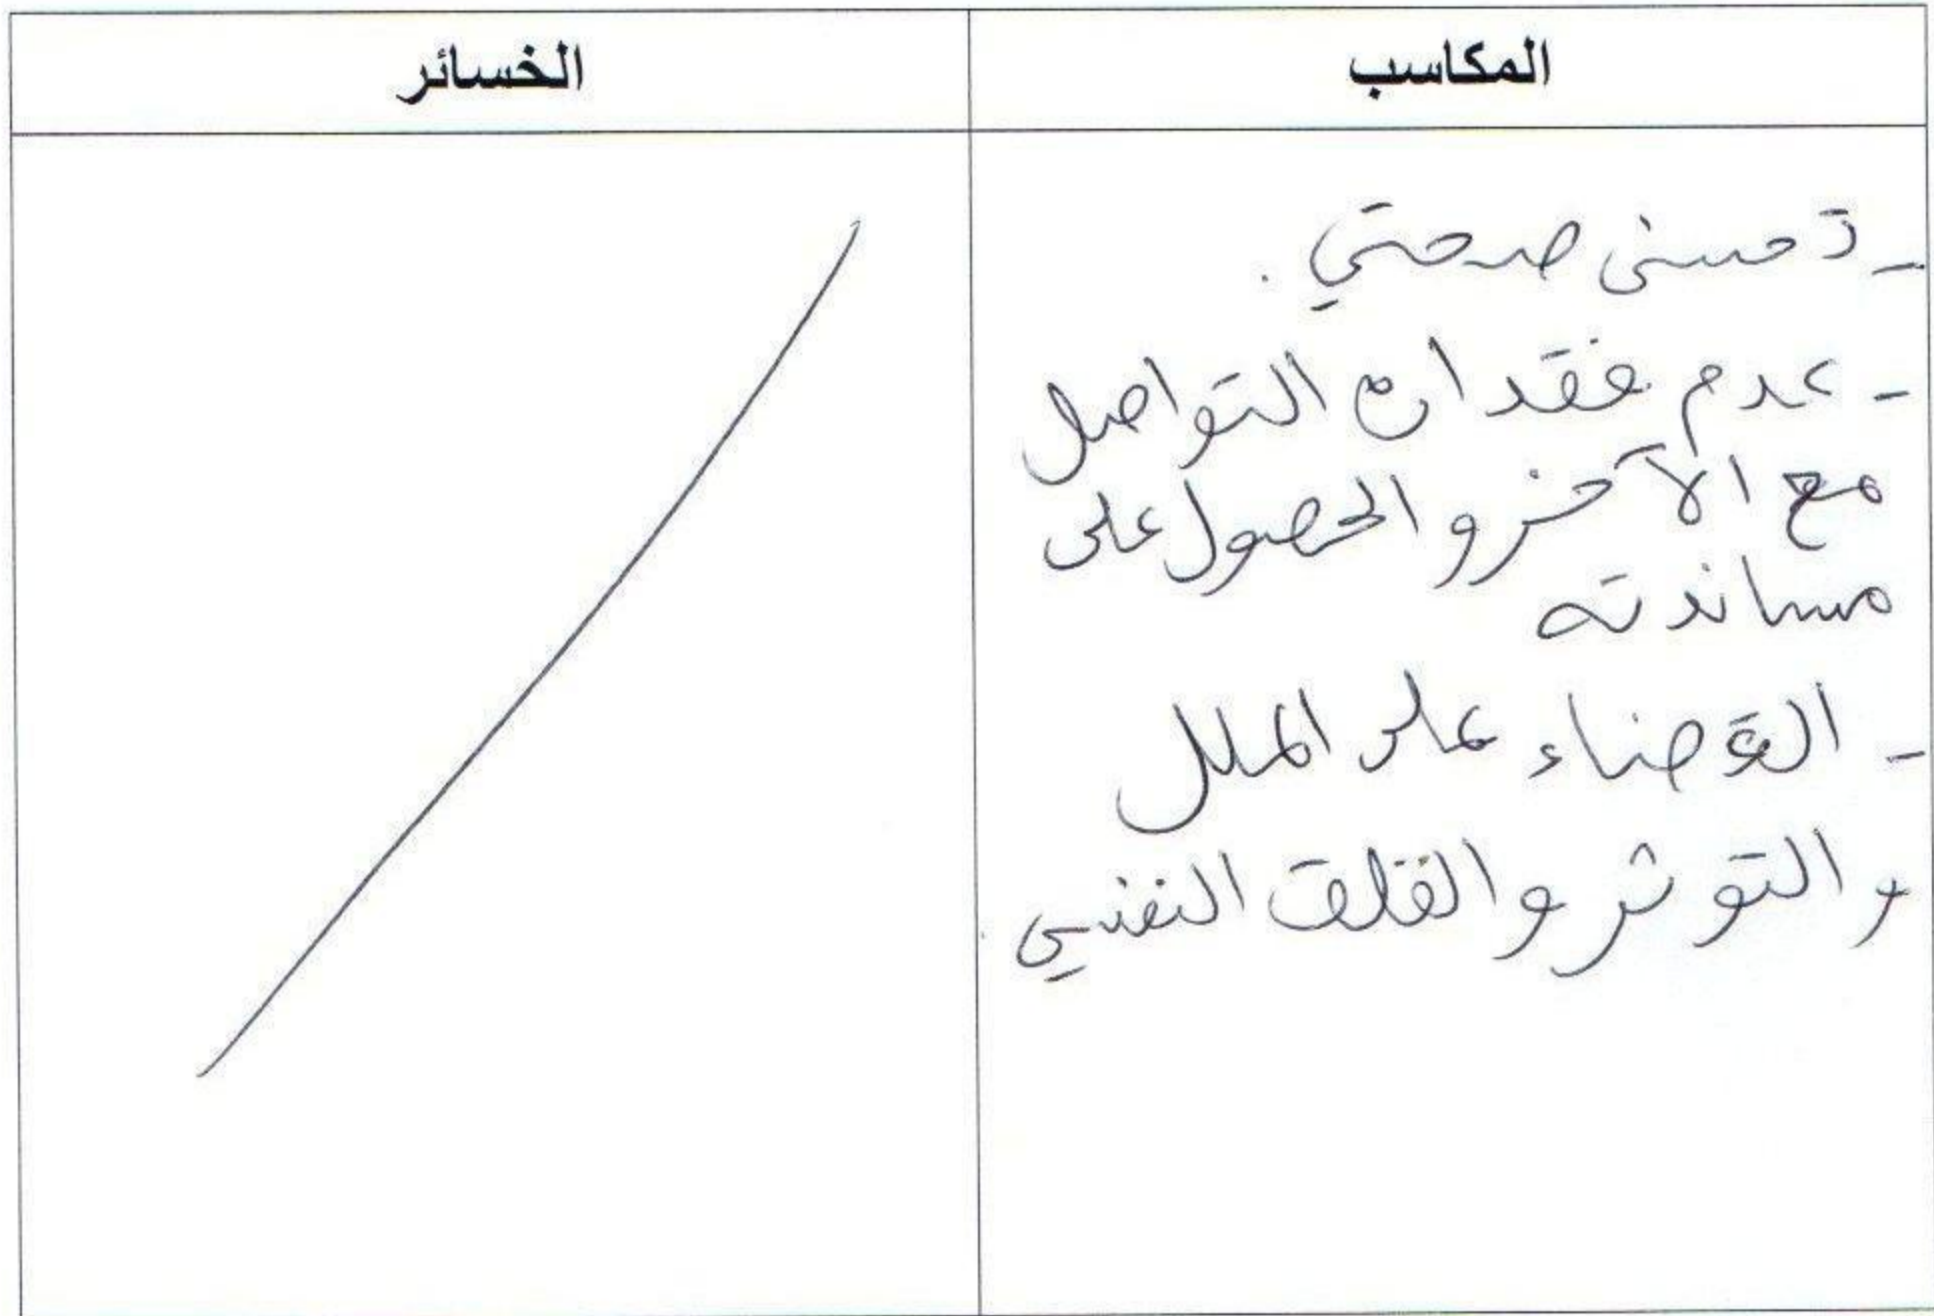 المكاسب
الخسائر
- تحسن صحتي .
- عدم فقدان التواصل
مع الآخر و الحصول على
مساندته
- القضاء على الملل
و التوثر و القلق النفسي